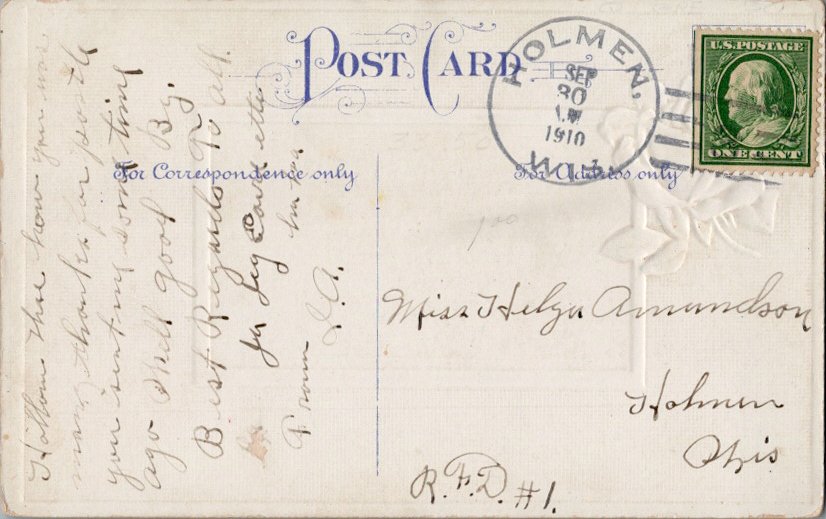 POST CARD
HOLMEN,
SEP
30
1910
WIS.
U.S. POSTAGE
ONE CENT
For Correspondence only
For Address only
how you was
many thanks for postle
you sent my some time
ago Well good By.
Best Regards To all
From
Miss Helga Amundson
Holmen
Wis
R.F.D. #1.